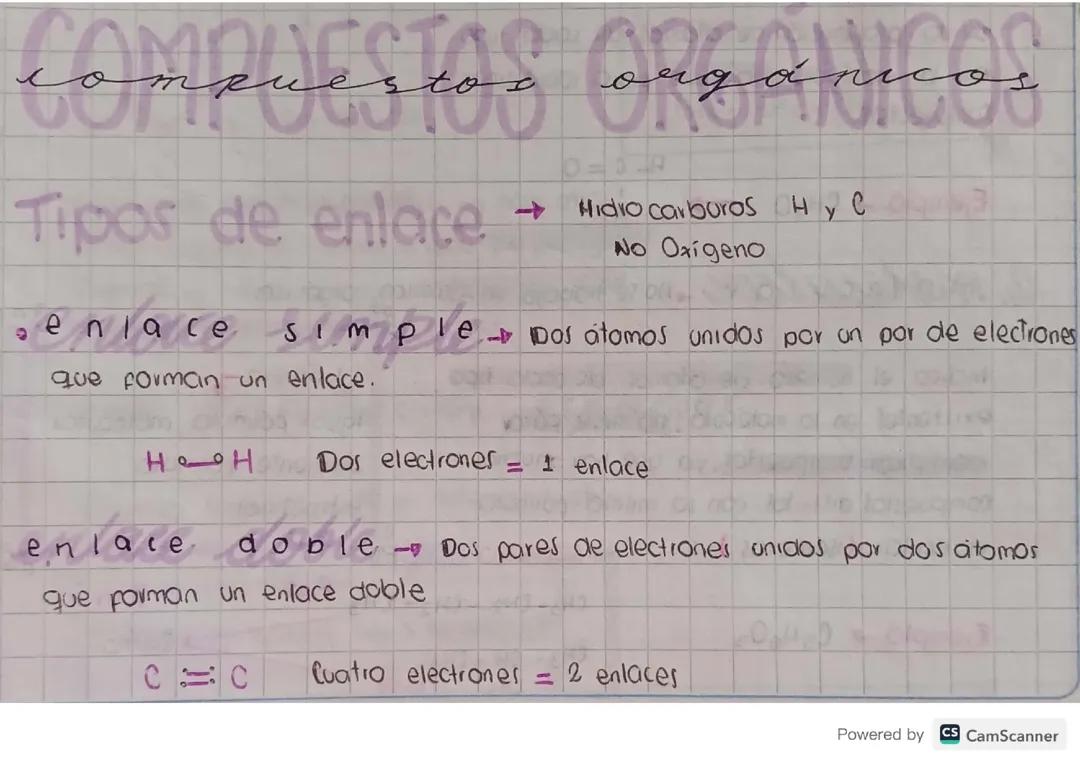 COMPUESTOS ORGÁNICOS
compuestos orgánicos
Tipos de enlace → Hidrocarburos H y C
No Oxígeno
• enlace simple → Dos átomos unidos por un par de electrones
que forman un enlace.
H o—o H Dos electrones = 1 enlace
enlace doble → Dos pares de electrones unidos por dos átomos
que forman un enlace doble
C :=: C Cuatro electrones = 2 enlaces
Powered by CS CamScanner